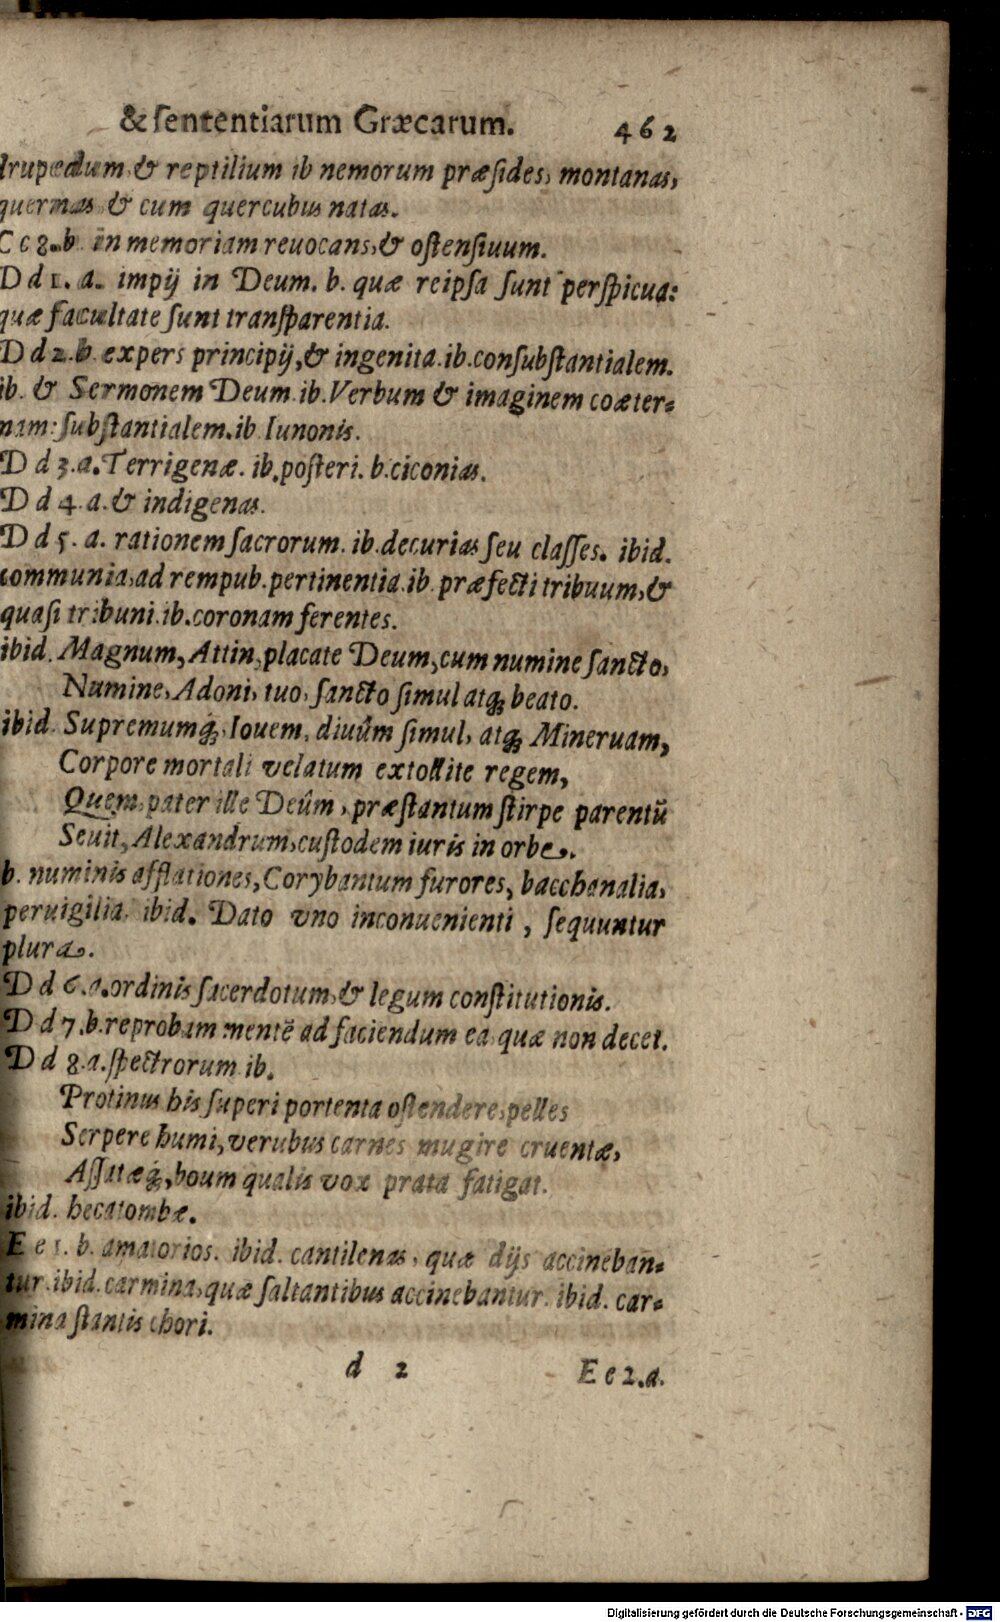 & sententiarum Græcarum. 462
drupedum, & reptilium ib nemorum præsides, montanas,
quernas & cum quercubus natas.
C c 8. b. in memoriam reuocans, & ostensiuum.
D d 1. a. impij in Deum. b. quæ reipsa sunt perspicua:
quæ facultate sunt transparentia.
D d 2. b. expers principij, & ingenita. ib. consubstantialem.
ib. & Sermonem Deum. ib. Verbum & imaginem coæter-
nam: substantialem. ib. Iunonis.
D d 3. a. Terrigenæ. ib. posteri. b. ciconias.
D d 4. a. & indigenas.
D d 5. a. rationem sacrorum. ib. decurias seu classes. ibid.
communia, ad rempub. pertinentia. ib. præfecti tribuum, &
quasi tribuni. ib. coronam ferentes.
ibid. Magnum, Attin, placate Deum, cum numine sancto,
Numine, Adoni, tuo, sancto simul atq; beato.
ibid. Supremumq;, Iouem, diuûm simul, atq; Mineruam,
Corpore mortali velatum extollite regem,
Quem, pater ille Deûm, præstantum stirpe parentũ
Seuit, Alexandrum, custodem iuris in orbe.
b. numinis afflationes, Corybantum furores, bacchanalia,
peruigilia. ibid. Dato vno inconuenienti, sequuntur
plura.
D d 6. a. ordinis sacerdotum, & legum constitutionis.
D d 7. b. reprobam mentẽ ad faciendum ea, quæ non decet.
D d 8. a. spectrorum ib.
Protinus his superi portenta ostendere, pelles
Serpere humi, verubus carnes mugire cruentæ,
Assatæq;, boum qualis vox prata fatigat.
ibid. hecatombæ.
E e 1. b. amatorios. ibid. cantilenas, quæ dijs accineban-
tur. ibid. carmina, quæ saltantibus accinebantur. ibid. car-
mina stantis chori.
d 2 E e 2. a.
Digitalisierung gefördert durch die Deutsche Forschungsgemeinschaft - DFG